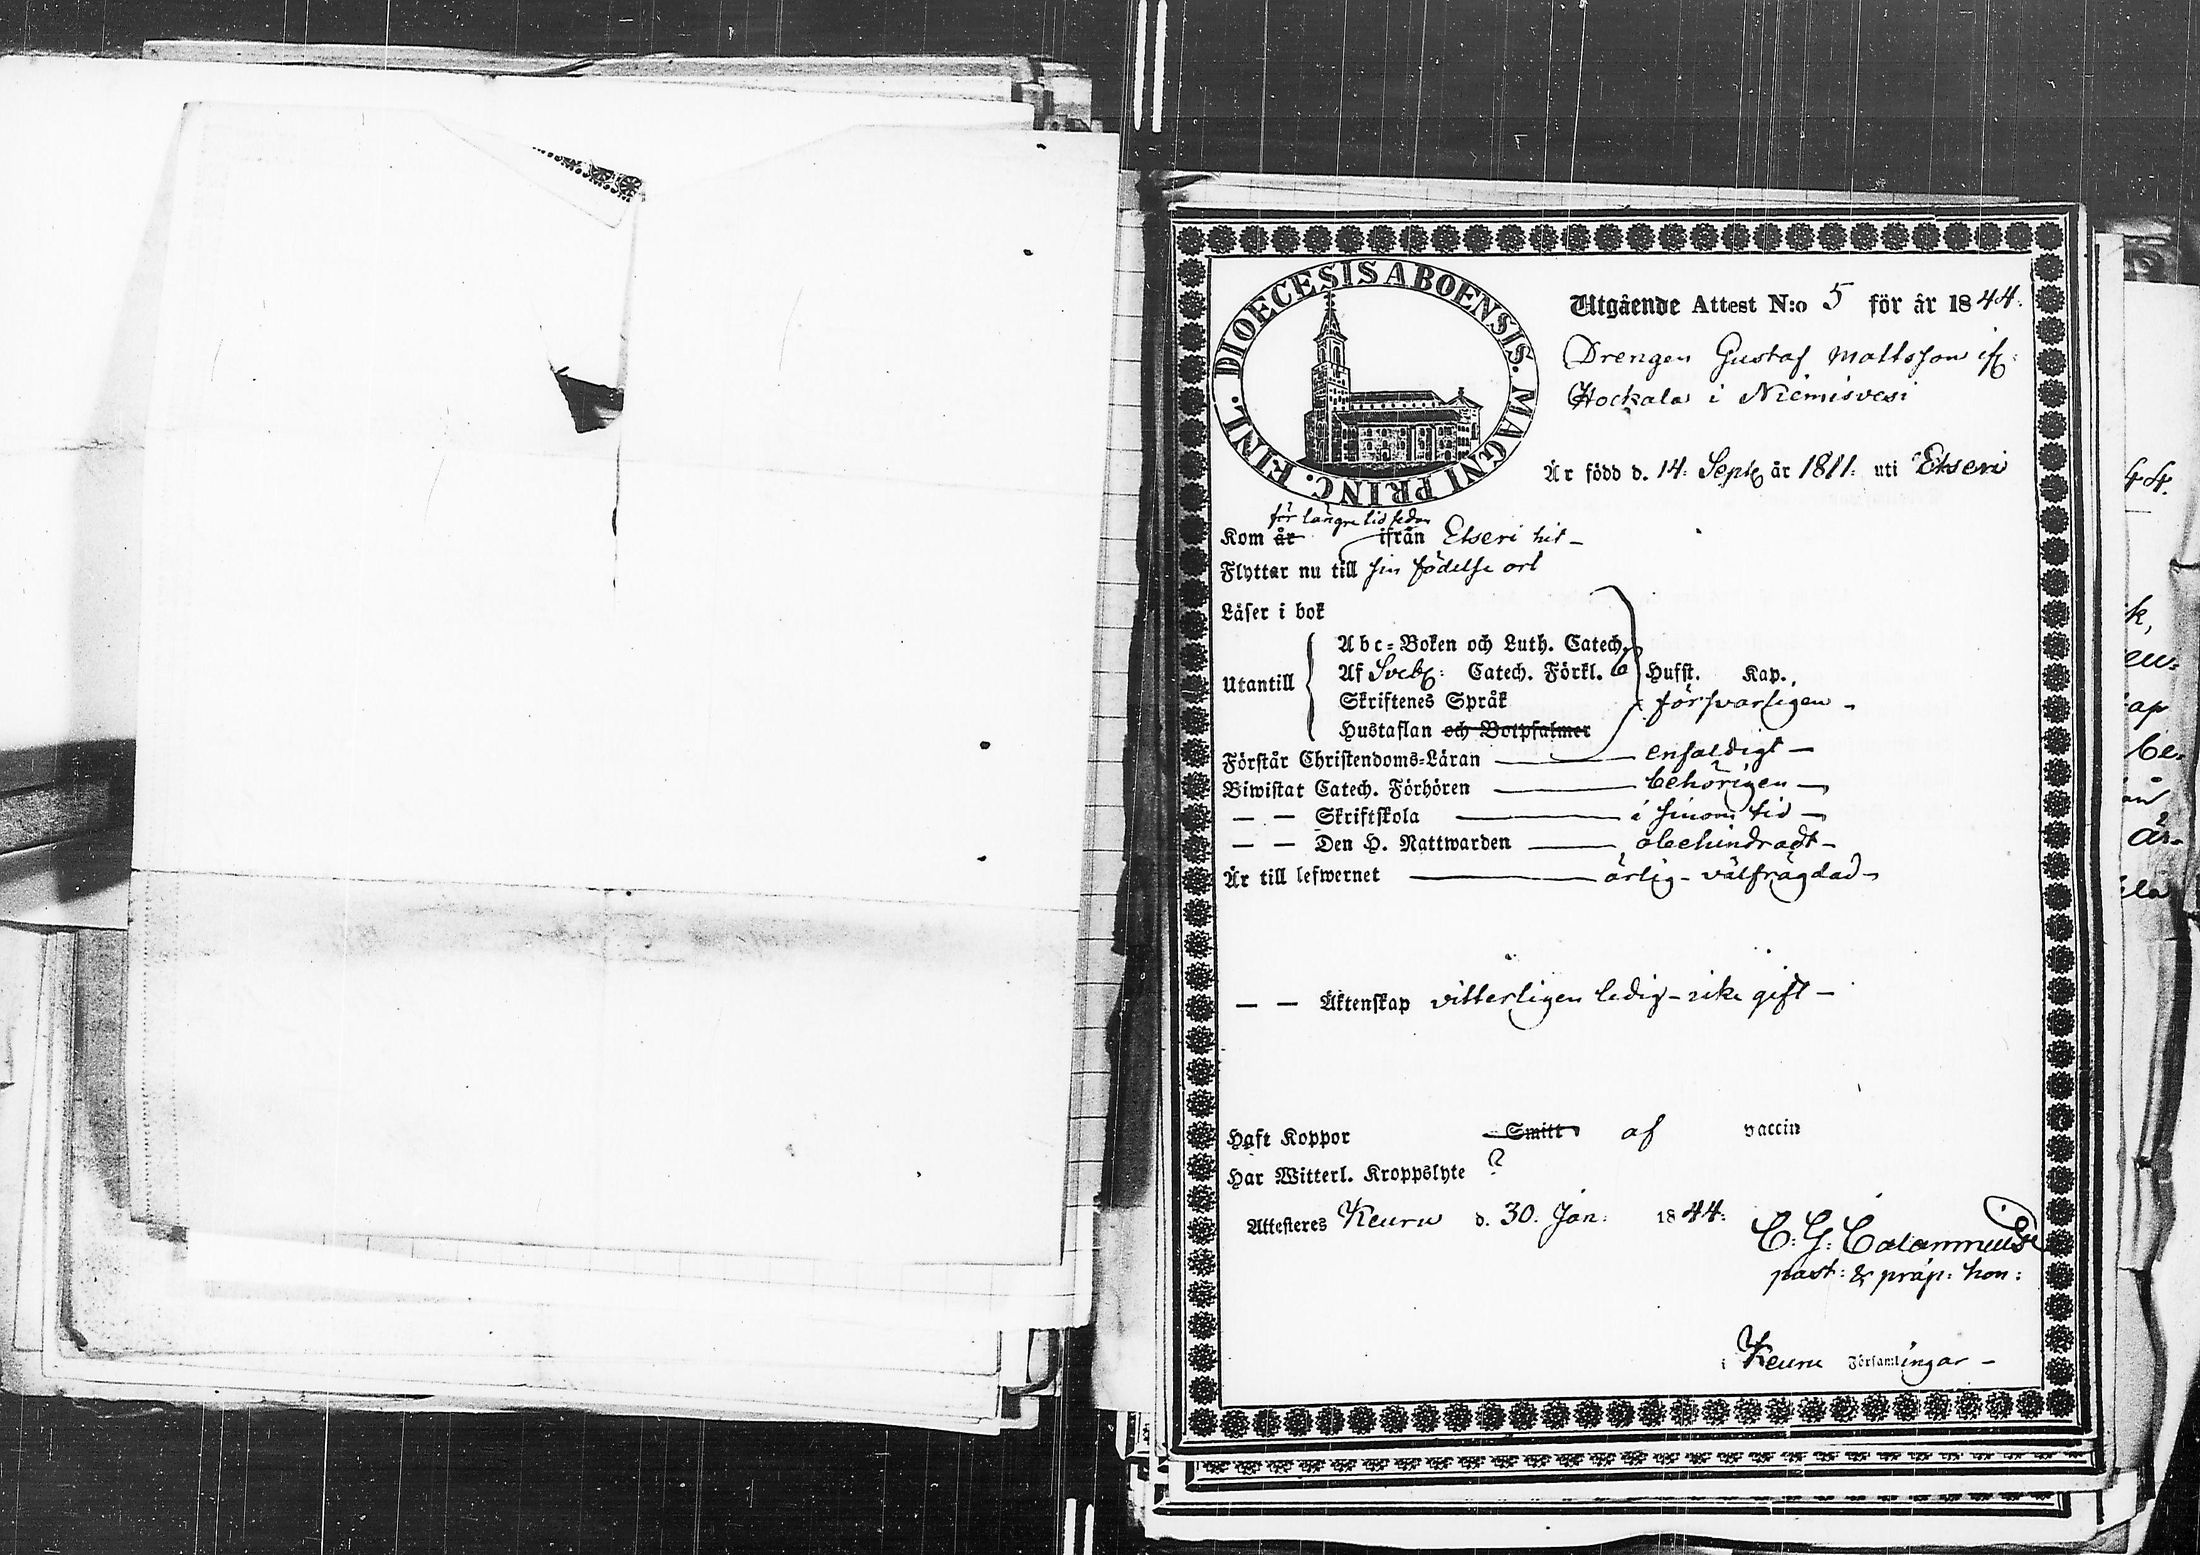 DIOECESIS ABOENSIS. MAGNI PRINC. FINL.
Utgående Attest N:o 5 för år 1844.
Drengen Gustaf Mattsson
Hockala i Niemisvesi
Är född d. 14: Sept. år 1811: uti Etseri
för längre tid sedan
Kom år ifrån Etseri hit –
Flyttar nu till sin födelse ort
Läser i bok
Abc-Boken och Luth. Catech.
Utantill Af Sveb: Catech. Förkl. Husst. Kap.
Skriftenes Språk försvarligen –
Hustaflan och Botpsalmer
Förstår Christendoms-Läran — enfaldigt –
Biwistat Catech. Förhören — behörigen –
— — Skriftskola — i sinom tid –
— — Den H. Nattwarden — obehindradt –
Är till lefwernet — ärlig – välfrägdad –
— — Äktenskap vitterligen ledig – icke gift –
Haft Koppor Smitt af vaccin
Har Witterl. Kroppslyte ?
Attesteres Keuru d. 30. Jan: 1844:
C: G: Calamnius
past: & präp: hon:
i Keuru Församlingar –
44.
k,
en-
ap
be-
är-
la